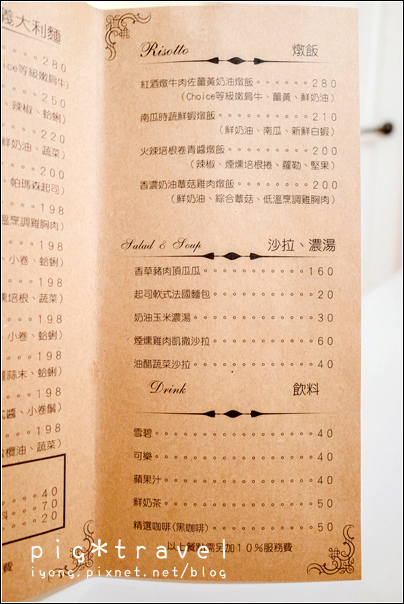 義大利麵
280
ice等級嫩肩牛)
250
、辣椒、蛤蜊)
220
鮮奶油、蔬菜)
200
、帕瑪森起司)
198
溫烹調雞胸肉)
198
、小卷、蛤蜊)
198
燻培根、蔬菜)
198
、小卷、蛤蜊)
198
蒜末、蛤蜊)
198
醬、小卷鬚)
198
欖油、蔬菜)
40
70
料 20
費
Risotto 燉飯
紅酒燉牛肉佐薑黃奶油燉飯 280
(Choice等級嫩肩牛、薑黃、鮮奶油)
南瓜時蔬鮮蝦燉飯 210
(鮮奶油、南瓜、新鮮白蝦)
火辣培根卷青醬燉飯 200
(辣椒、煙燻培根捲、蘿勒、堅果)
香濃奶油蕈菇雞肉燉飯 200
(鮮奶油、綜合蕈菇、低溫烹調雞胸肉)
Salad & Soup 沙拉、濃湯
香草豬肉頂瓜瓜 160
起司軟式法國麵包 20
奶油玉米濃湯 30
煙燻雞肉凱撒沙拉 60
油醋蔬菜沙拉 40
Drink 飲料
雪碧 40
可樂 40
蘋果汁 40
鮮奶茶 50
精選咖啡(黑咖啡) 50
以上餐點需另加10%服務費
pig*travel
iyong.pixnet.net/blog